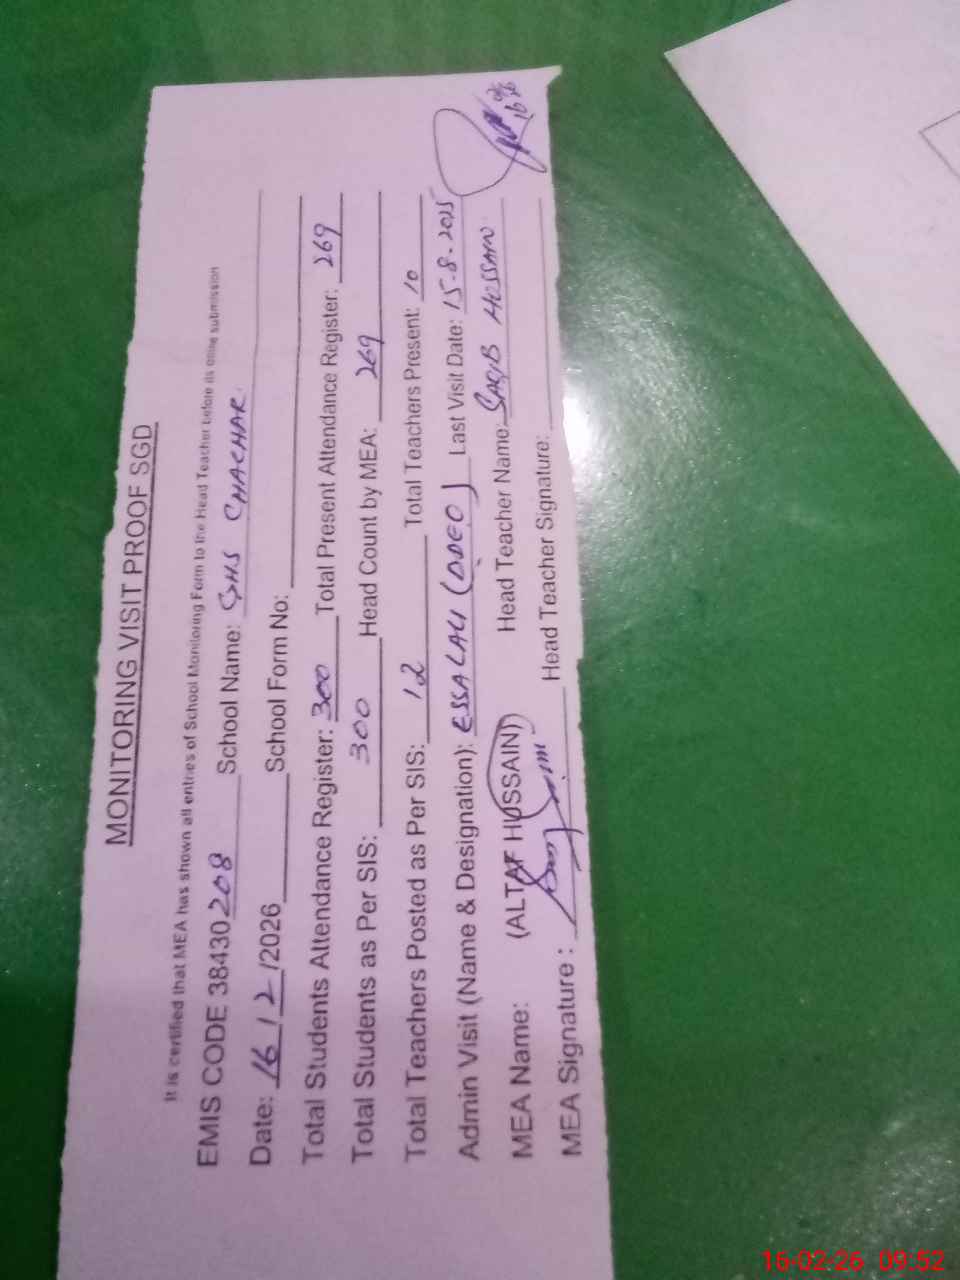 MONITORING VISIT PROOF SGD
It is certified that MEA has shown all entries of School Monitoring Form to the Head Teacher before its online submission
EMIS CODE 38430208 School Name: GHS CHACHAR
Date: 16/2/2026 School Form No:
Total Students Attendance Register: 300 Total Present Attendance Register: 269
Total Students as Per SIS: 300 Head Count by MEA: 269
Total Teachers Posted as Per SIS: 12 Total Teachers Present: 10
Admin Visit (Name & Designation): ESSA LALI (DDEO) Last Visit Date: 15-8-2025
MEA Name: (ALTAF HUSSAIN) Head Teacher Name: SAQIB HUSSAIN
MEA Signature: Head Teacher Signature:
16-02-26 09:52